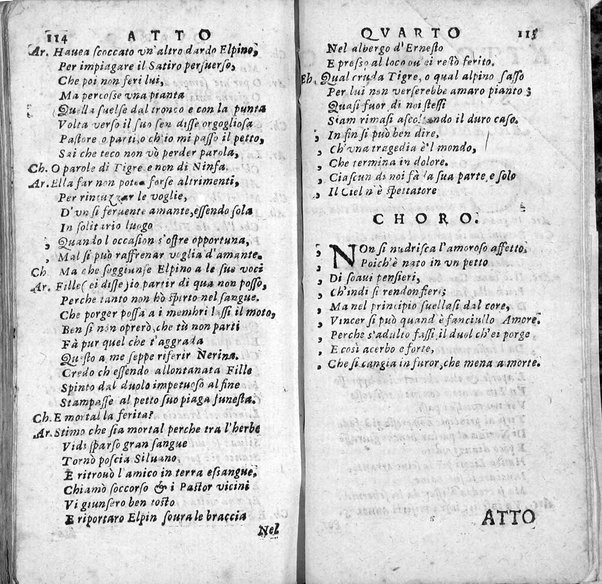 114 ATTO
Ar. Hauea scoccato vn'altro dardo Elpino,
Per impiagare il Satiro peruerso,
Che poi non feri lui,
Ma percosse vna pianta
Quella suelse dal tronco e con la punta
Volta verso il suo sen disse orgogliosa
Pastore o parti, o ch'io mi passo il petto,
Sai che teco non vò perder parola,
Ch. O parole di Tigre e non di Ninfa.
Ar. Ella far non potea forse altrimenti,
Per rintuzzar le voglie,
D'vn si feruente amante, essendo sola
In solitario luogo
, Quando l'occasion s'offre opportuna,
, Mal si può raffrenar voglia d'amante.
Ch. Ma che soggiunse Elpino a le sue voci
Ar. Fille (ei disse) io partir di qua non posso,
Perche tanto non hò spirto nel sangue.
Che porger possa a i membri lassi il moto,
Ben si non oprerò, che tù non parti
Fà pur quel che t'aggrada
Questo a me seppe riferir Nerina.
Credo ch essendo allontanata Fille
Spinto dal duolo impetuoso al fine
Stampasse al petto suo piaga funesta.
Ch. E mortal la ferita?
Ar. Stimo che sia mortal perche tra l'herbe
Vidi sparso gran sangue
Tornò poscia Siluano
E ritrouò l'amico in terra esangue,
Chiamò soccorso & i Pastor vicini
Vi giunsero ben tosto
E riportaro Elpin soura le braccia
Nel
QVARTO 115
Nel albergo d'Ernesto
E presso al loco ou'ei restò ferito.
Ch. Qual cruda Tigre, o qual alpino sasso
Per lui non verserebbe amaro pianto;
Quasi fuor di noi stessi
Siam rimasi ascoltando il duro caso.
, In fin si può ben dire,
, Ch'vna tragedia è'l mondo,
, Che termina in dolore.
, Ciascun di noi fà la sua parte, e solo
, Il Ciel n'è spettatore
CHORO.
, NOn si nudrisca l'amoroso affetto,
, Poich'è nato in vn petto
, Di soaui pensieri,
, Ch'indi si rendon fieri;
, Ma nel principio suellasi dal core,
, Vincer si può quand'è fanciullo Amore.
, Perche s'adulto fassi il duol ch'ei porge
, E così acerbo e forte,
, Che si cangia in furor, che mena a morte.
ATTO